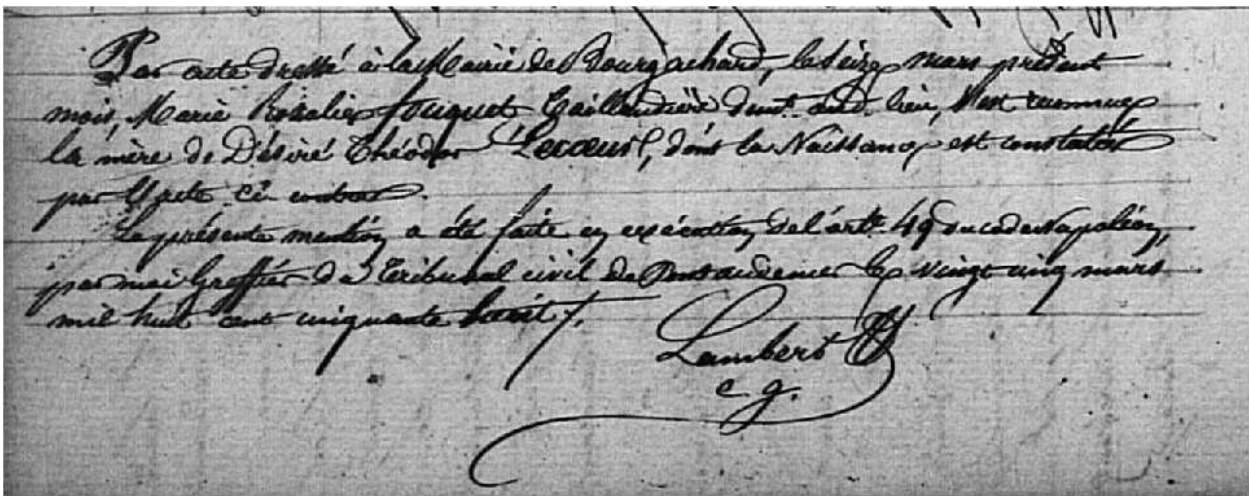 Par acte dressé à la Mairie de Bourgachard, le seize mars présent
mois, Marie Rosalie fouquet Taillandière dem.t aud. lieu, s'est reconnue
la mère de Désiré Théodor Lecoeur, dont la Naissance est constatée
par l'acte ci contre.
La présente mention a été faite en exécution de l'art. 49 du code Napoléon,
par moi Greffier du Tribunal civil de Pontaudemer le vingt cinq mars
mil huit cent cinquante huit.
Lambert
c. g.